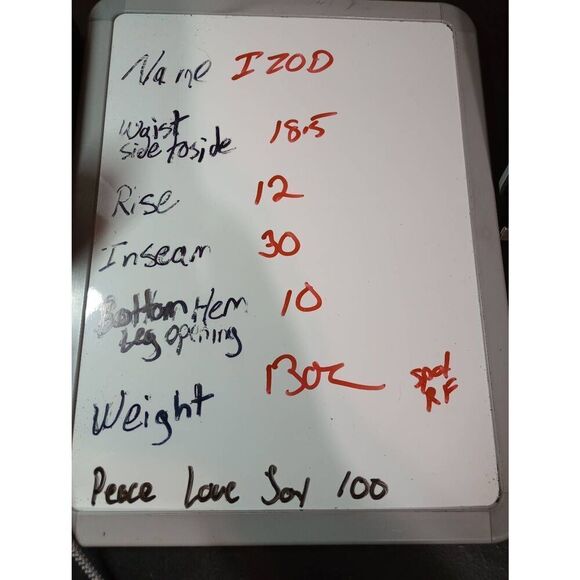 Name IZOD
Waist
side to side 18.5
Rise 12
Inseam 30
Bottom Hem 10
Leg opening
Weight 13oz spot
RF
Peace Love Joy 100